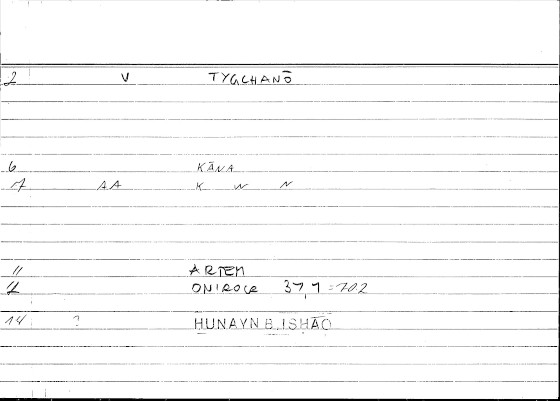 2 V TYGCHANŌ
6 KĀNA
17 AA K W N
11 ARTEM
12 ONIROCR 37,1 = 702
14 ? HUNAYN B. ISHĀQ